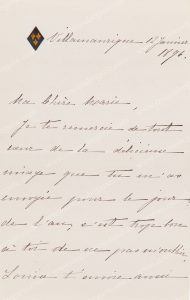 Villamanrique 15 Janvier
1896.
Ma Chère Marie,
Je te remercie de tout
cœur de la délicieuse
image que tu m'as
envoyée pour le jour
de l'an, c'est trop bon
à toi de ne pas m'oublier.
Louise t'envoie aussi